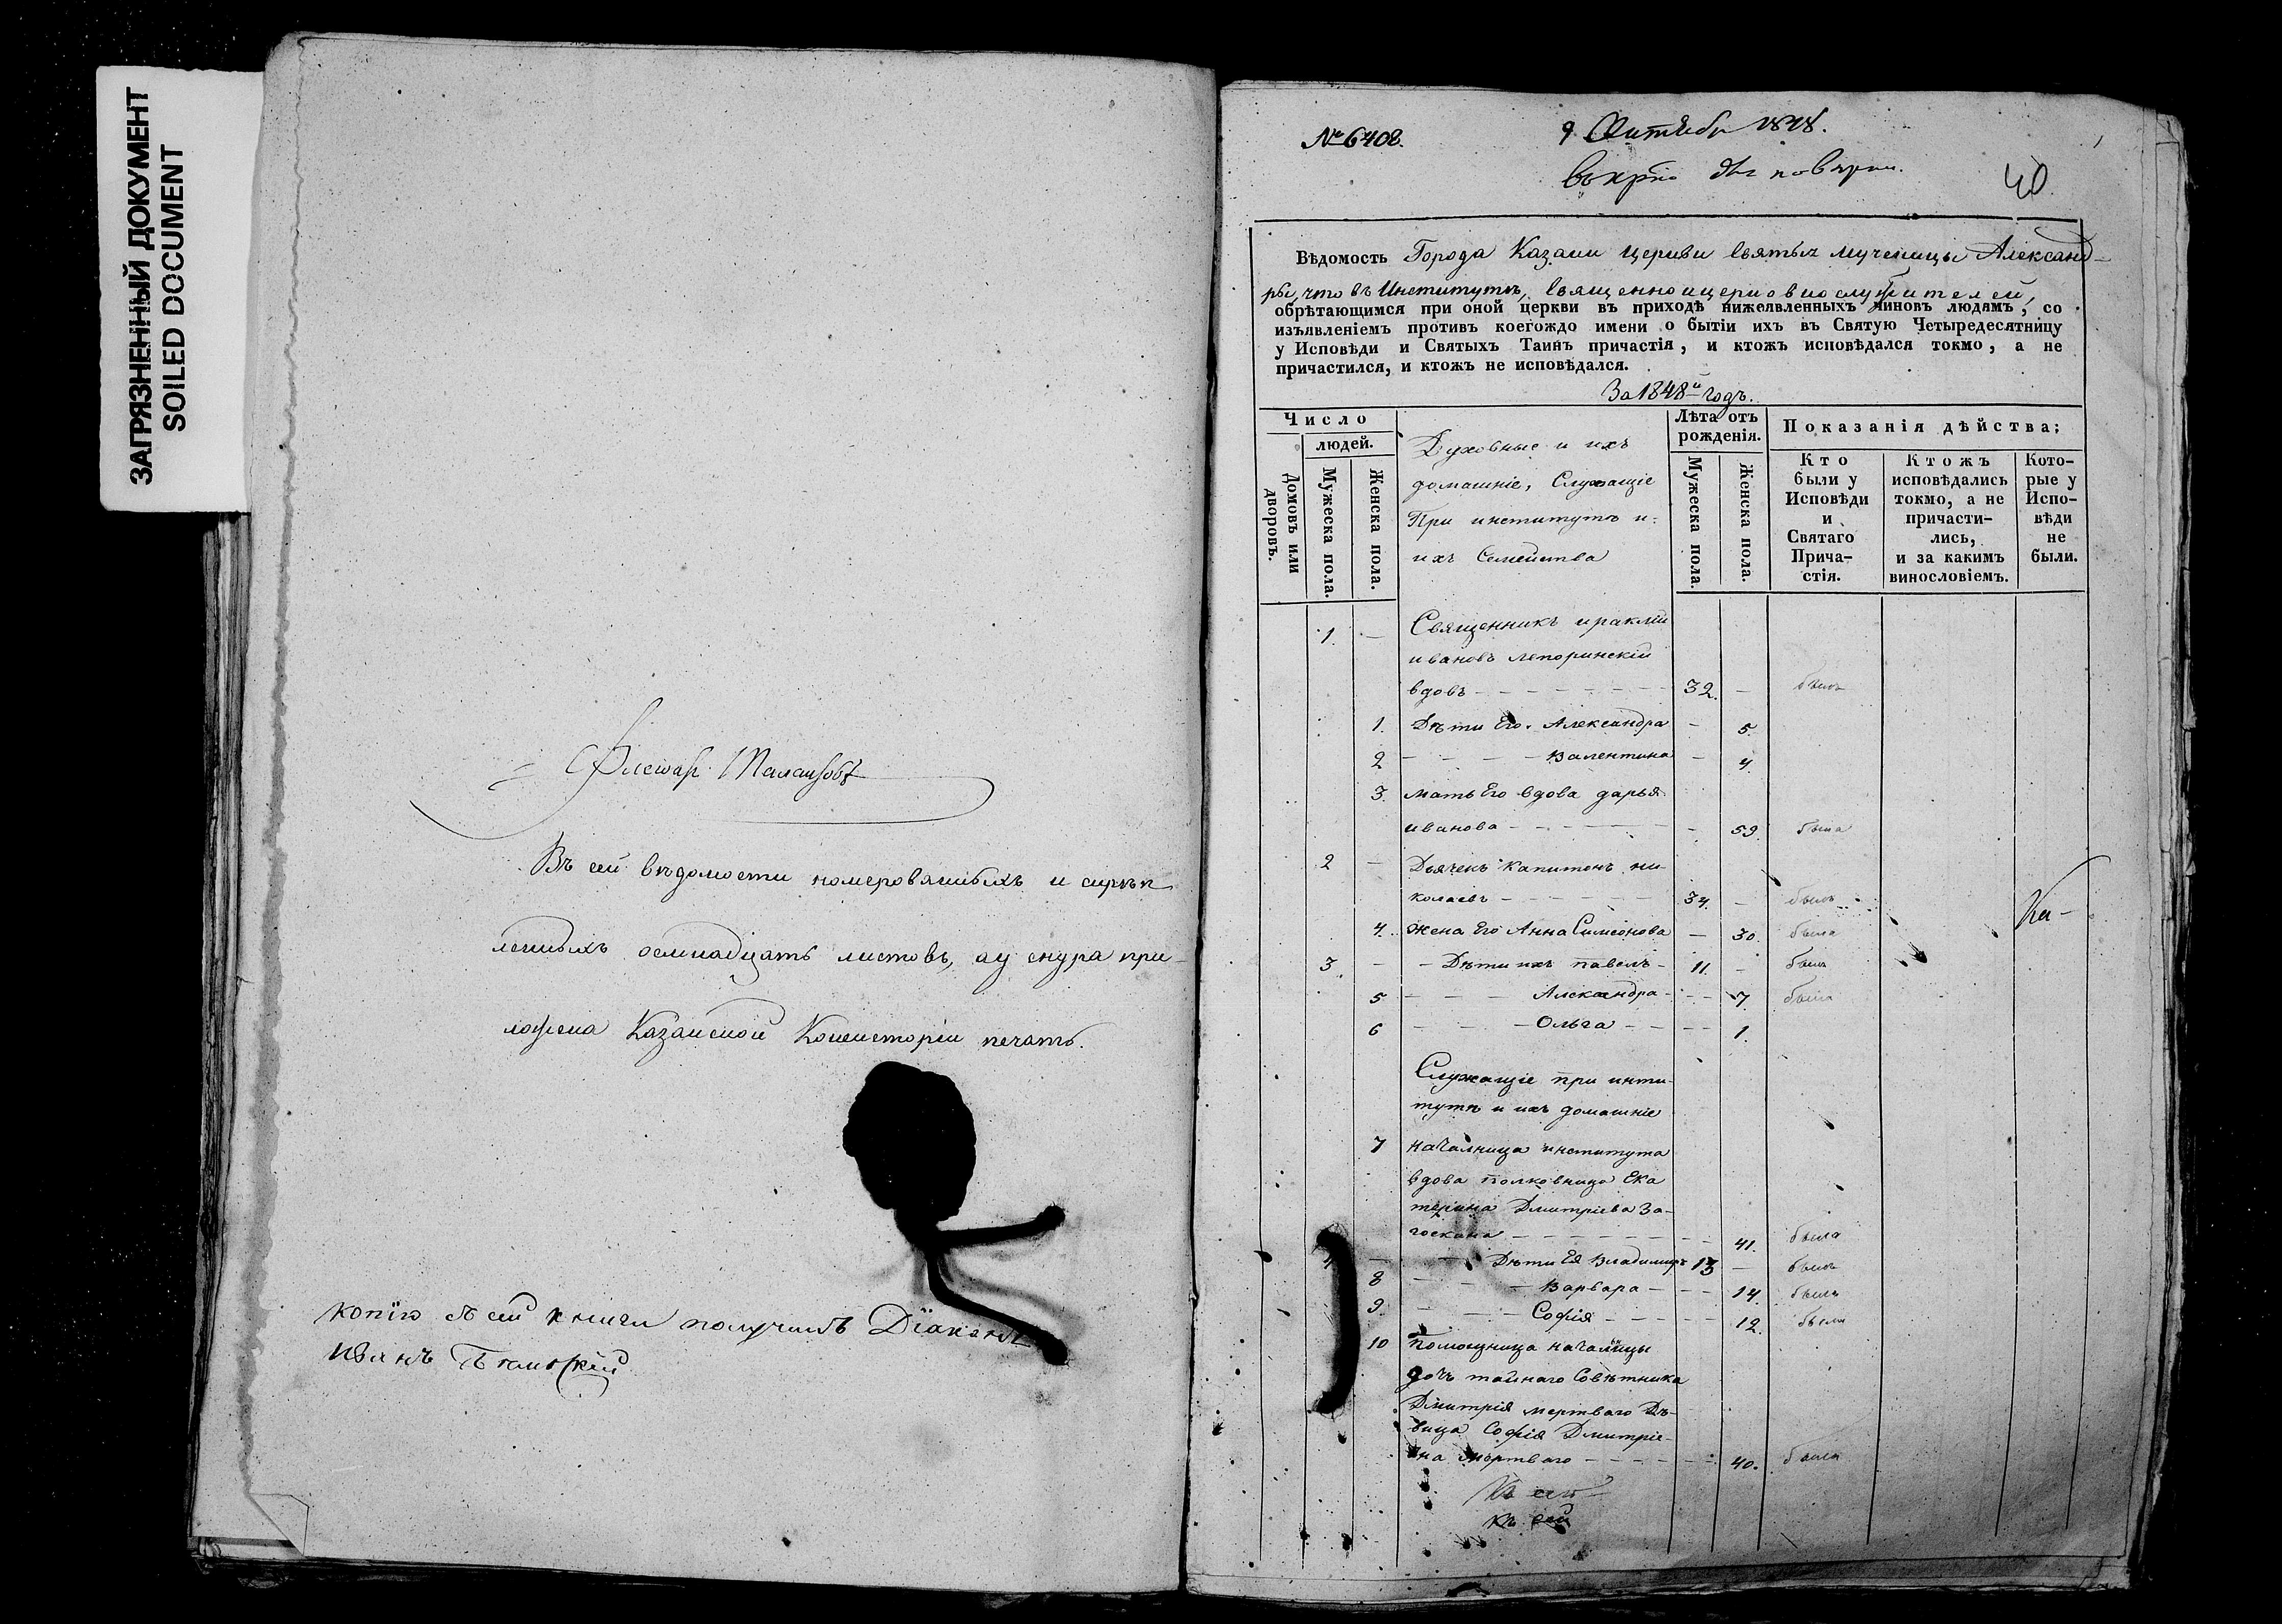 ЗАГРЯЗНЕННЫЙ ДОКУМЕНТ
SOILED DOCUMENT
Въ сей вѣдомости номерованныхъ и скрѣп
ленныхъ осмнадцать листовъ, а у снура при-
ложена Казанской Консисторіи печать.
копїю съ сей книги получилъ Дїаконъ
Иванъ
№ 6408.
9 Октября 1848.
40
Вѣдомость Города Казани церкви святыя мученицы Александ-
ры, что въ Институтѣ, священноицерковнослужителей,
обрѣтающимся при оной церкви въ приходѣ нижеявленныхъ чиновъ людямъ, со
изъявленіемъ противъ коегождо имени о бытіи ихъ въ Святую Четыредесятницу
у Исповѣди и Святыхъ Таинъ причастія, и ктожъ исповѣдался токмо, а не
причастился, и ктожъ не исповѣдался.
За 1848й годъ.
Число
людей.
Домовъ или дворовъ.
Мужеска пола.
Женска пола.
Духовные и ихъ
домашніе, Служащіе
При институтѣ и
ихъ Семейства
Лѣта отъ рожденія.
Мужеска пола.
Женска пола.
Показанія дѣйства;
Кто были у Исповѣди и Святаго Прича-стія.
Ктожъ исповѣдались токмо, а не причасти-лись, и за какимъ винословіемъ.
Кото-рые у Испо-вѣди не были.
1. — Священникъ ираклій
ивановъ лепоринскій
вдовъ — 32. — былъ
1. Дѣти Его. Александра — 5.
2 — Валентина — 4.
3. мать Его вдова дарья
иванова — 59. была
2 — Дьячекъ Капитонъ ни-
колаевъ — 34. — былъ
4. жена Его Анна Симеонова — 30. была
3 — Дѣти ихъ павелъ — 11. — былъ
5 — Александра — 7. была
6 — Ольга — 1.
Служащіе при инти-
тутѣ и ихъ домашніе
7 началница института
вдова полковница Ека
терина Дмитріева За-
госкина — 41. была
4 — Дѣти Ея Владимиръ 13 — былъ
8 — Варвара — 14. была
9. — Софія — 12. была
10 помощница началницы
дочъ тайнаго Совѣтника
Дмитрія мертваго Дѣ-
вица Софія Дмитріе-
вна мертваго — 40. была
Ка-
къ сей